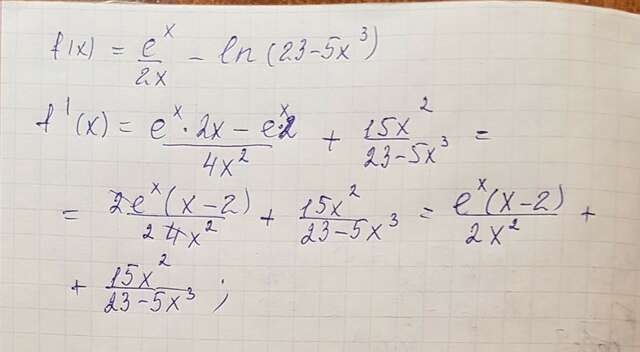 f(x) = e^x/2x - ln(23-5x^3)
f'(x) = (e^x · 2x - e^x · 2)/4x^2 + 15x^2/(23-5x^3) =
= 2e^x(x-2)/2 4x^2 + 15x^2/(23-5x^3) = e^x(x-2)/2x^2 +
+ 15x^2/(23-5x^3) ;